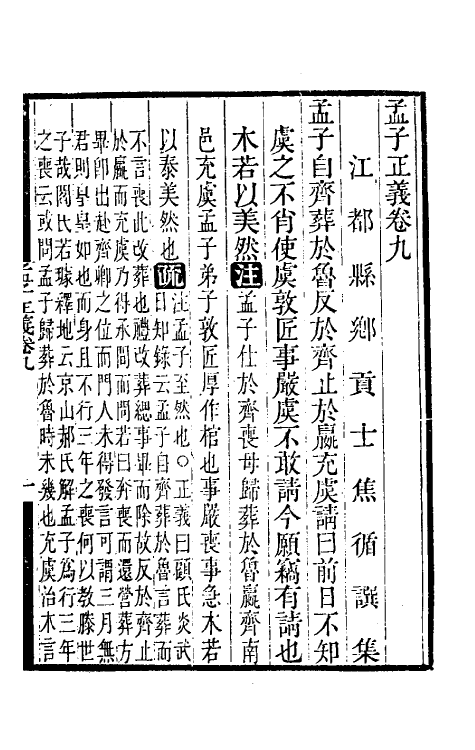 孟子正義卷九
江都縣鄉貢士焦循譔集
孟子自齊葬於魯反於齊止於嬴充虞請曰前日不知
虞之不肖使虞敦匠事嚴虞不敢請今願竊有請也
木若以美然注孟子仕於齊喪母歸葬於魯嬴齊南
邑充虞孟子弟子敦匠厚作棺也事嚴喪事急木若
以泰美然也疏注孟子至然也○正義曰顧氏炎武
日知錄云孟子自齊葬於魯言葬而
不言喪此改葬也禮改葬緦事畢而除故反於齊止
於嬴而充虞乃得承問而問若曰奔喪而還營葬方
畢卽出赴齊卿之位而門人未得發言可謂三月無
君則皇皇如也而身且不行三年之喪何以教滕世
子哉閻氏若璩釋地云京山郝氏解孟子爲行三年
之喪云或問孟子歸葬於魯時未幾也充虞治木言
孟子正義卷九
一